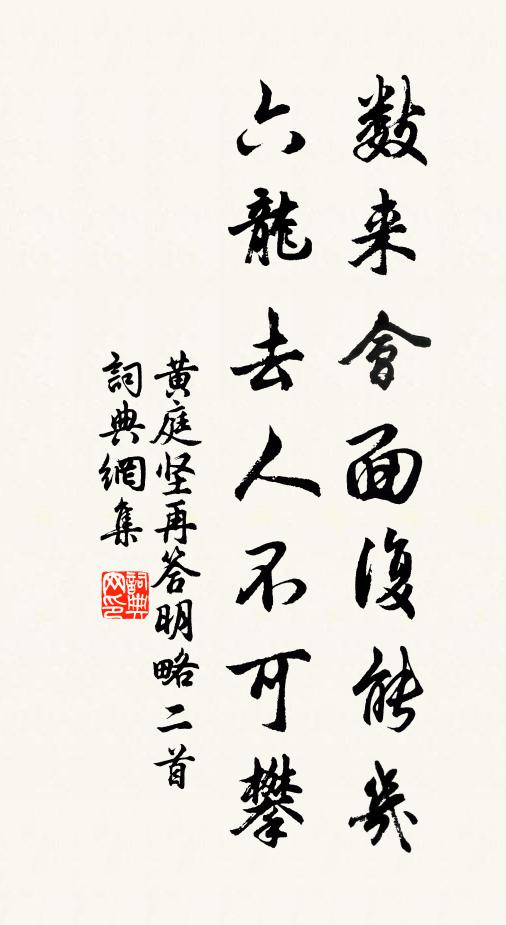 数来會面復能幾
六龍去人不可攀
黄庭坚再答明略二首
詞典網集
詞典网印